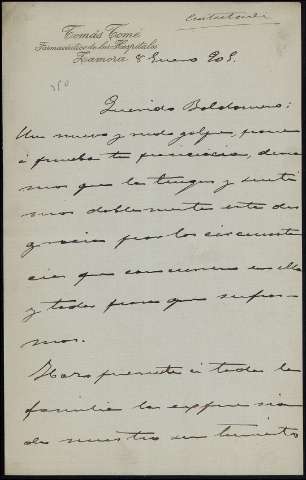 Contestada
Tomás Tomé
Farmacéutico de los Hospitales
Zamora 8 Enero 905.
Querido Baldomero:
Un nuevo y rudo golpe, pone
á prueba tu paciencia, desea
mos que la tengas y senti
mos doblemente esta des
gracia por las circunstan
cias que concurren en ella
y todas para que sufra
mos.
Haz presente á toda la
familia la expresion
de nuestro sentimiento